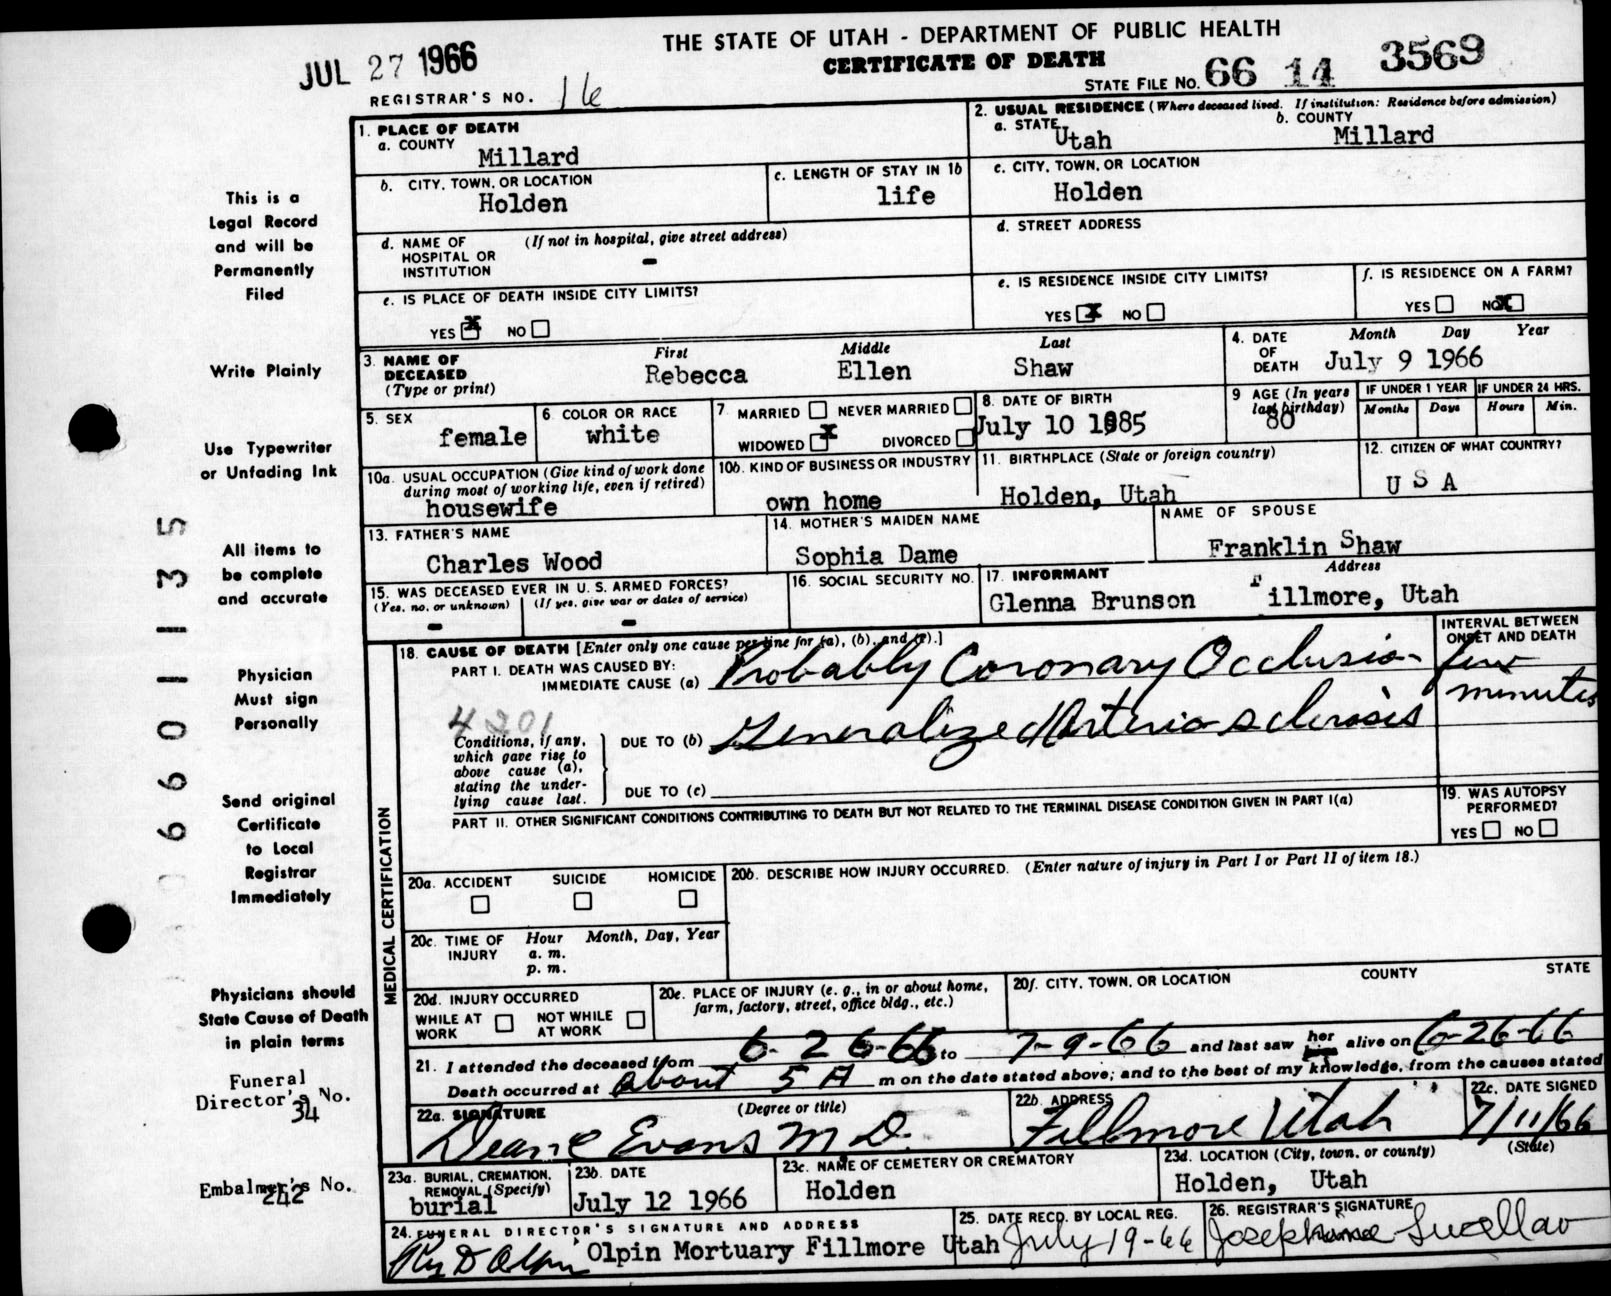 JUL 27 1966
THE STATE OF UTAH - DEPARTMENT OF PUBLIC HEALTH
CERTIFICATE OF DEATH
STATE FILE NO. 66 14 3569
REGISTRAR'S NO. 16
1. PLACE OF DEATH
a. COUNTY
Millard
2. USUAL RESIDENCE (Where deceased lived. If institution: Residence before admission)
a. STATE Utah
b. COUNTY Millard
b. CITY, TOWN, OR LOCATION
Holden
c. LENGTH OF STAY IN 1b
life
c. CITY, TOWN, OR LOCATION
Holden
d. NAME OF HOSPITAL OR INSTITUTION (If not in hospital, give street address)
-
d. STREET ADDRESS
e. IS PLACE OF DEATH INSIDE CITY LIMITS?
YES X NO
e. IS RESIDENCE INSIDE CITY LIMITS?
YES X NO
f. IS RESIDENCE ON A FARM?
YES NO X
3. NAME OF DECEASED (Type or print)
First Middle Last
Rebecca Ellen Shaw
4. DATE OF DEATH
Month Day Year
July 9 1966
5. SEX
female
6. COLOR OR RACE
white
7. MARRIED NEVER MARRIED
WIDOWED X DIVORCED
8. DATE OF BIRTH
July 10 1885
9 AGE (In years last birthday)
80
IF UNDER 1 YEAR
Months Days
IF UNDER 24 HRS.
Hours Min.
10a. USUAL OCCUPATION (Give kind of work done during most of working life, even if retired)
housewife
10b. KIND OF BUSINESS OR INDUSTRY
own home
11. BIRTHPLACE (State or foreign country)
Holden, Utah
12. CITIZEN OF WHAT COUNTRY?
U S A
13. FATHER'S NAME
Charles Wood
14. MOTHER'S MAIDEN NAME
Sophia Dame
NAME OF SPOUSE
Franklin Shaw
15. WAS DECEASED EVER IN U. S. ARMED FORCES?
(Yes, no, or unknown) (If yes, give war or dates of service)
- -
16. SOCIAL SECURITY NO.
17. INFORMANT Address
Glenna Brunson Fillmore, Utah
MEDICAL CERTIFICATION
18. CAUSE OF DEATH [Enter only one cause per line for (a), (b), and (c).]
INTERVAL BETWEEN ONSET AND DEATH
PART I. DEATH WAS CAUSED BY:
IMMEDIATE CAUSE (a) Probably Coronary Occlusion
few minutes
4201
Conditions, if any, which gave rise to above cause (a), stating the underlying cause last.
DUE TO (b) Generalized Arteriosclerosis
DUE TO (c)
PART II. OTHER SIGNIFICANT CONDITIONS CONTRIBUTING TO DEATH BUT NOT RELATED TO THE TERMINAL DISEASE CONDITION GIVEN IN PART I(a)
19. WAS AUTOPSY PERFORMED?
YES NO
20a. ACCIDENT SUICIDE HOMICIDE
20b. DESCRIBE HOW INJURY OCCURRED. (Enter nature of injury in Part I or Part II of item 18.)
20c. TIME OF INJURY
Hour Month, Day, Year
a. m.
p. m.
20d. INJURY OCCURRED
WHILE AT WORK NOT WHILE AT WORK
20e. PLACE OF INJURY (e. g., in or about home, farm, factory, street, office bldg., etc.)
20f. CITY, TOWN, OR LOCATION COUNTY STATE
21. I attended the deceased from 6-26-66 to 7-9-66 and last saw her alive on 6-26-66
Death occurred at about 5 A m on the date stated above; and to the best of my knowledge, from the causes stated
22a. SIGNATURE (Degree or title)
Deane Evans M D.
22b. ADDRESS
Fillmore Utah
22c. DATE SIGNED
7/11/66
23a. BURIAL, CREMATION, REMOVAL (Specify)
burial
23b. DATE
July 12 1966
23c. NAME OF CEMETERY OR CREMATORY
Holden
23d. LOCATION (City, town, or county) (State)
Holden, Utah
24. FUNERAL DIRECTOR'S SIGNATURE AND ADDRESS
Olpin Mortuary Fillmore Utah
25. DATE RECD. BY LOCAL REG.
July 19-66
26. REGISTRAR'S SIGNATURE
This is a
Legal Record
and will be
Permanently
Filed
Write Plainly
Use Typewriter
or Unfading Ink
All items to
be complete
and accurate
Physician
Must sign
Personally
Send original
Certificate
to Local
Registrar
Immediately
Physicians should
State Cause of Death
in plain terms
Funeral
Director's No.
34
Embalmer's No.
242
06601135